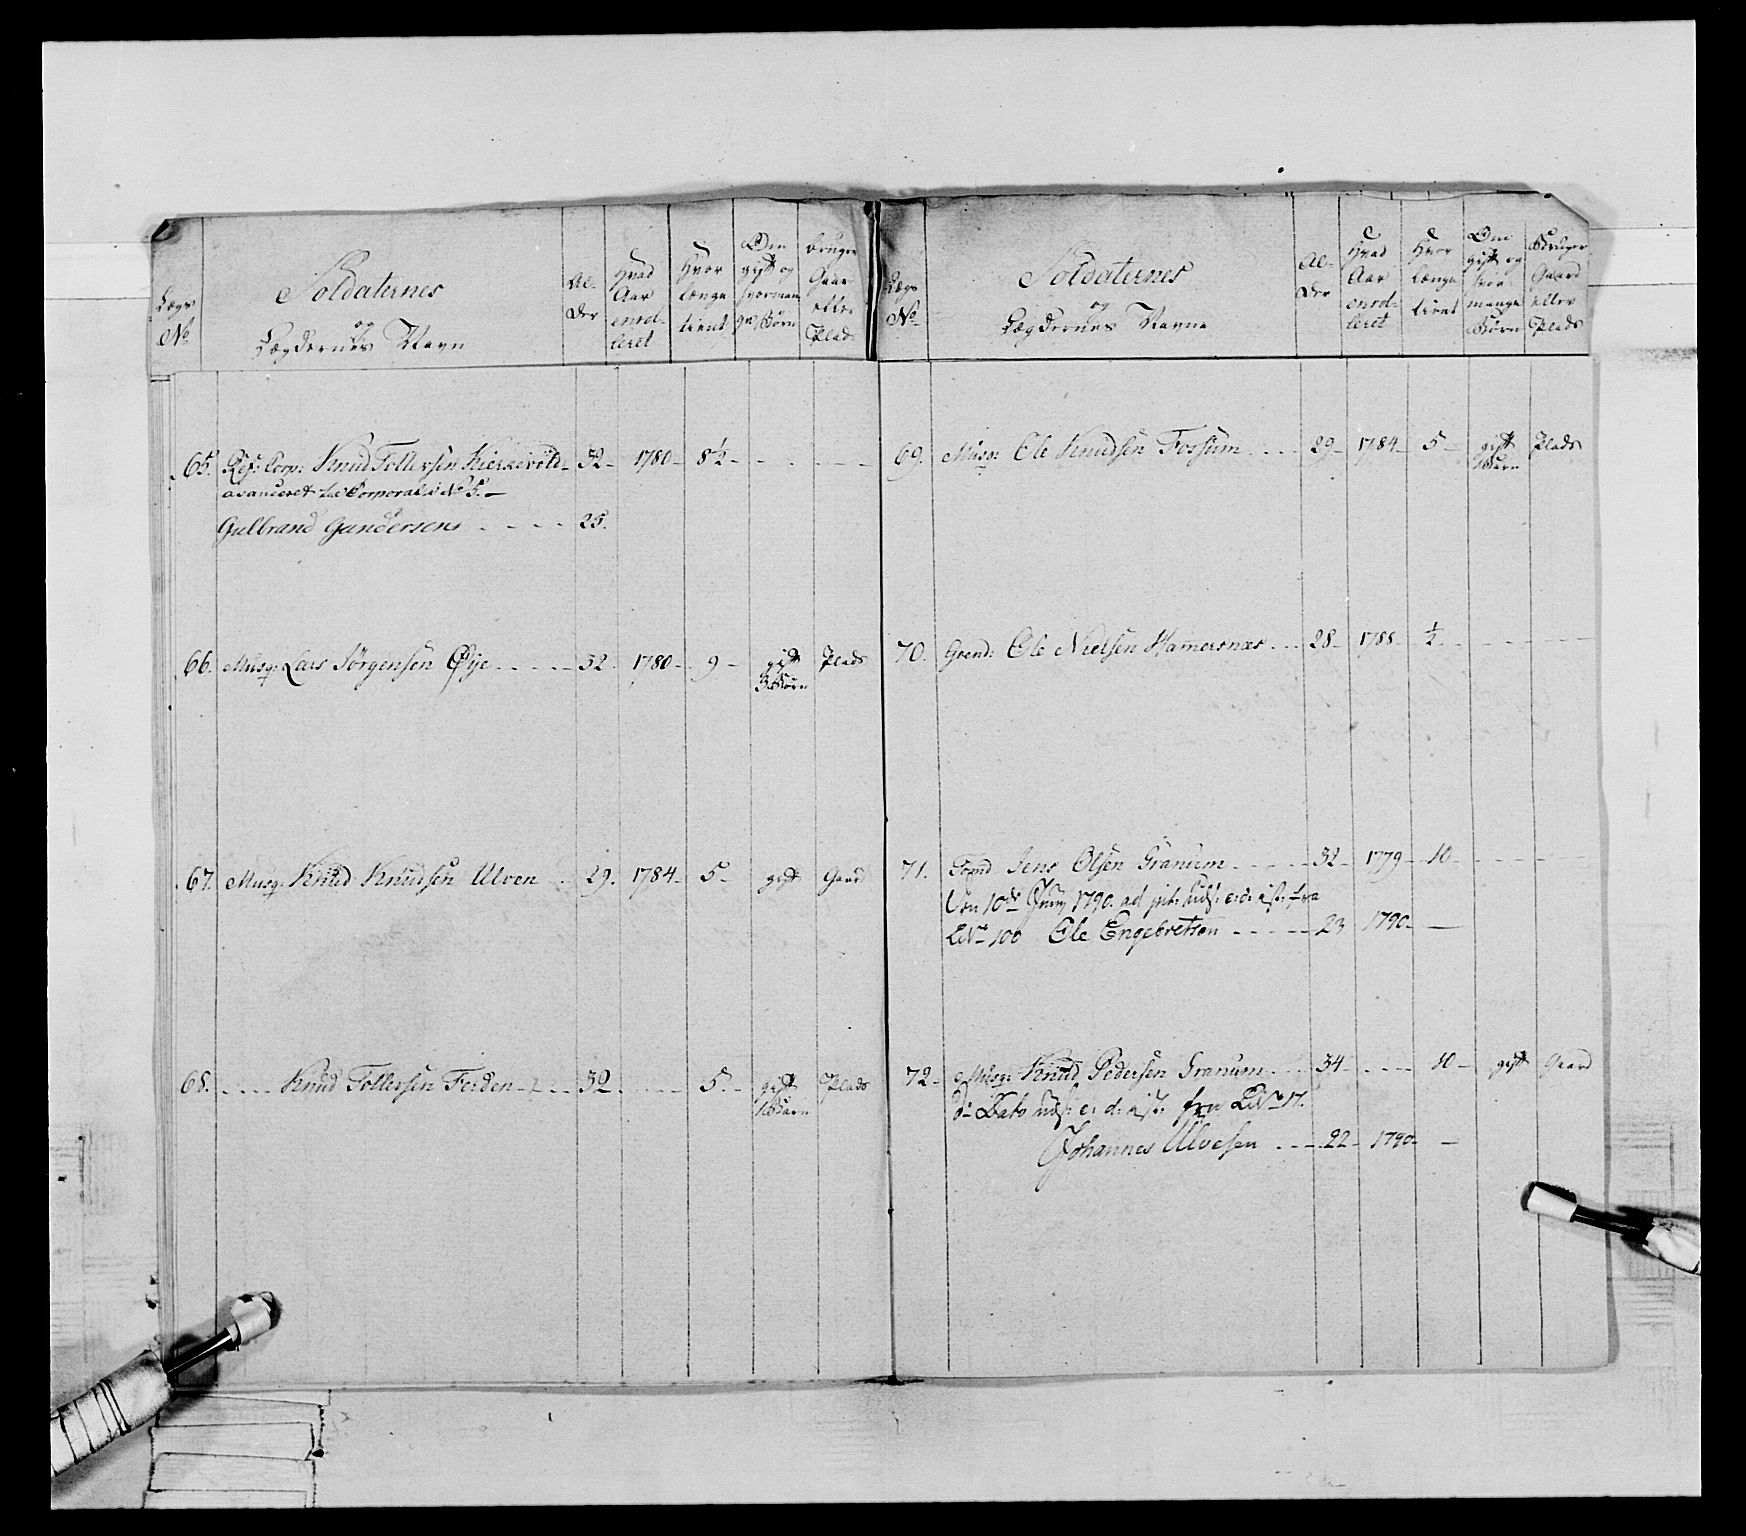 Lægs No
Soldaternes
og
Lægdernes Navn
Al-
der
Hvad
Aar
enrol-
leret
Hvor
længe
tient
Om
gift og
hvorman
ge Børn
bruger
Gaar
eller
Plads
65. Res: Corp: Knud Tollefsen Kierkevold 32 1780 8½
avanceret til Corporal i No 5.
Gulbrand Gundersen 25.
66. Musq: Lars Jörgensen Øÿe 32. 1780 9 gift Plads
3 Børn
67. Musq: Knud Knudsen Ulven 29. 1784 5 gift Gaard
68. Knud Tollefsen Ferden 32 5 gift Plads
1 Barn
Lægs No
Soldaternes
og
Lægdernes Navne
Al-
der
Hvad
Aar
enrol-
leret
Hvor
længe
tient
Om
gift og
hvor
mange
Børn
Bruger
Gaard
eller
Plads
69. Musq: Ole Knudsen Fossum 29 1784 5 gift Plads
1 Barn
70. Grend: Ole Nielsen Hamersnæs 28 1788 ½
71. Jens Olsen Granum 32 1779 10
den 10de Junÿ 1790. fra
LNo 100 Ole Engebretsen 23 1790
72. Musq: Knud Pedersen Granum 34 10 gift Gaard
Dato uds: e: d: fra LNo 17.
Johannes Ulvesen 22 1790